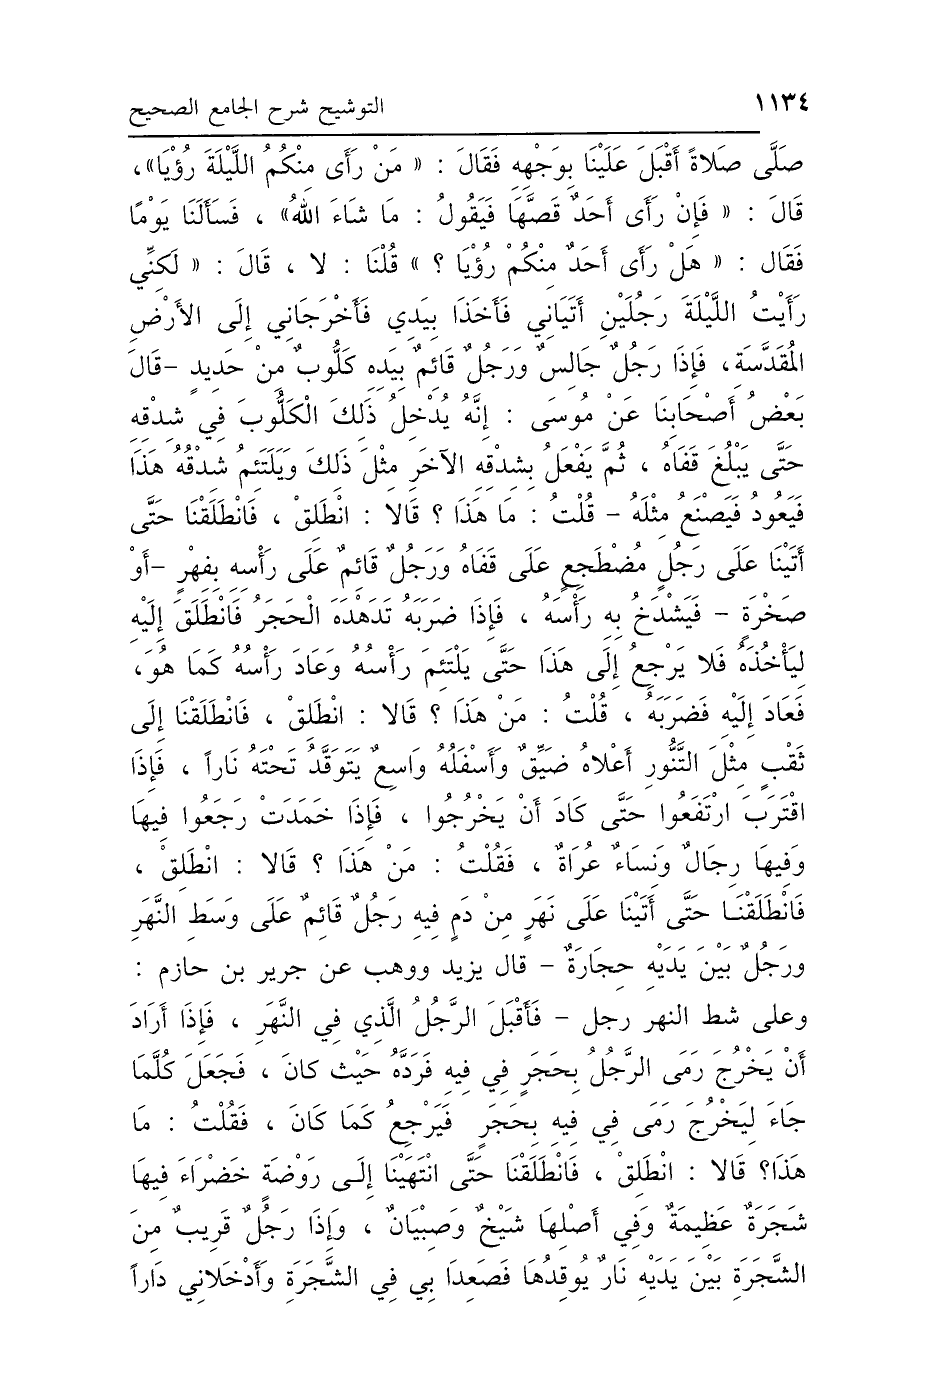 ١١٣٤
التوشيح شرح الجامع الصحيح
صَلَّى صَلاةً أَقْبَلَ عَلَيْنَا بِوَجْهِهِ فَقَالَ : « مَنْ رَأَى مِنْكُمُ اللَّيْلَةَ رُؤْيَا»،
قَالَ : « فَإِنْ رَأَى أَحَدٌ قَصَّهَا فَيَقُولُ : مَا شَاءَ اللهُ» ، فَسَأَلَنَا يَوْمًا
فَقَال : « هَلْ رَأَى أَحَدٌ مِنْكُمْ رُؤْيَا ؟ » قُلْنَا : لا ، قَالَ : « لَكِنِّي
رَأَيْتُ اللَّيْلَةَ رَجُلَيْنِ أَتَيَانِي فَأَخَذَا بِيَدِي فَأَخْرَجَانِي إِلَى الأَرْضِ
الْمُقَدَّسَةِ، فَإِذَا رَجُلٌ جَالِسٌ وَرَجُلٌ قَائِمٌ بِيَدِهِ كَلُّوبٌ مِنْ حَدِيدٍ –قَالَ
بَعْضُ أَصْحَابِنَا عَنْ مُوسَى : إِنَّهُ يُدْخِلُ ذَلِكَ الْكَلُّوبَ فِي شِدْقِهِ
حَتَّى يَبْلُغَ قَفَاهُ ، ثُمَّ يَفْعَلُ بِشِدْقِهِ الآخَرِ مِثْلَ ذَلِكَ وَيَلْتَئِمُ شِدْقُهُ هَذَا
فَيَعُودُ فَيَصْنَعُ مِثْلَهُ – قُلْتُ : مَا هَذَا ؟ قَالا : انْطَلِقْ ، فَانْطَلَقْنَا حَتَّى
أَتَيْنَا عَلَى رَجُلٍ مُضْطَجِعٍ عَلَى قَفَاهُ وَرَجُلٌ قَائِمٌ عَلَى رَأْسِهِ بِفِهْرٍ –أَوْ
صَخْرَةٍ – فَيَشْدَخُ بِهِ رَأْسَهُ ، فَإِذَا ضَرَبَهُ تَدَهْدَهَ الْحَجَرُ فَانْطَلَقَ إِلَيْهِ
لِيَأْخُذَهُ فَلا يَرْجِعُ إِلَى هَذَا حَتَّى يَلْتَئِمَ رَأْسُهُ وَعَادَ رَأْسُهُ كَمَا هُوَ،
فَعَادَ إِلَيْهِ فَضَرَبَهُ ، قُلْتُ : مَنْ هَذَا ؟ قَالا : انْطَلِقْ ، فَانْطَلَقْنَا إِلَى
ثَقْبٍ مِثْلَ التَّنُّورِ أَعْلاهُ ضَيِّقٌ وَأَسْفَلُهُ وَاسِعٌ يَتَوَقَّدُ تَحْتَهُ نَاراً ، فَإِذَا
اقْتَرَبَ ارْتَفَعُوا حَتَّى كَادَ أَنْ يَخْرُجُوا ، فَإِذَا خَمَدَتْ رَجَعُوا فِيهَا
وَفِيهَا رِجَالٌ وَنِسَاءٌ عُرَاةٌ ، فَقُلْتُ : مَنْ هَذَا ؟ قَالا : انْطَلِقْ ،
فَانْطَلَقْنَا حَتَّى أَتَيْنَا عَلَى نَهَرٍ مِنْ دَمٍ فِيهِ رَجُلٌ قَائِمٌ عَلَى وَسَطِ النَّهَرِ
ورَجُلٌ بَيْنَ يَدَيْهِ حِجَارَةٌ – قال يزيد ووهب عن جرير بن حازم :
وعلى شط النهر رجل – فَأَقْبَلَ الرَّجُلُ الَّذِي فِي النَّهَرِ ، فَإِذَا أَرَادَ
أَنْ يَخْرُجَ رَمَى الرَّجُلُ بِحَجَرٍ فِي فِيهِ فَرَدَّهُ حَيْث كانَ ، فَجَعَلَ كُلَّمَا
جَاءَ لِيَخْرُجَ رَمَى فِي فِيهِ بِحَجَرٍ فَيَرْجِعُ كَمَا كَانَ ، فَقُلْتُ : مَا
هَذَا؟ قَالا : انْطَلِقْ ، فَانْطَلَقْنَا حَتَّى انْتَهَيْنَا إِلَى رَوْضَةٍ خَضْرَاءَ فِيهَا
شَجَرَةٌ عَظِيمَةٌ وَفِي أَصْلِهَا شَيْخٌ وَصِبْيَانٌ ، وَإِذَا رَجُلٌ قَرِيبٌ مِنَ
الشَّجَرَةِ بَيْنَ يَدَيْهِ نَارٌ يُوقِدُهَا فَصَعِدَا بِي فِي الشَّجَرَةِ وَأَدْخَلانِي دَاراً